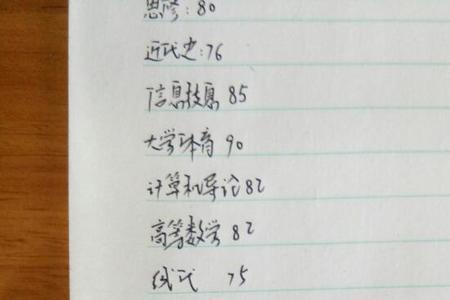 思修:80
近代史:76
信息技息 85
大学体育 90
计算机导论82
高等数学 82
线代 75